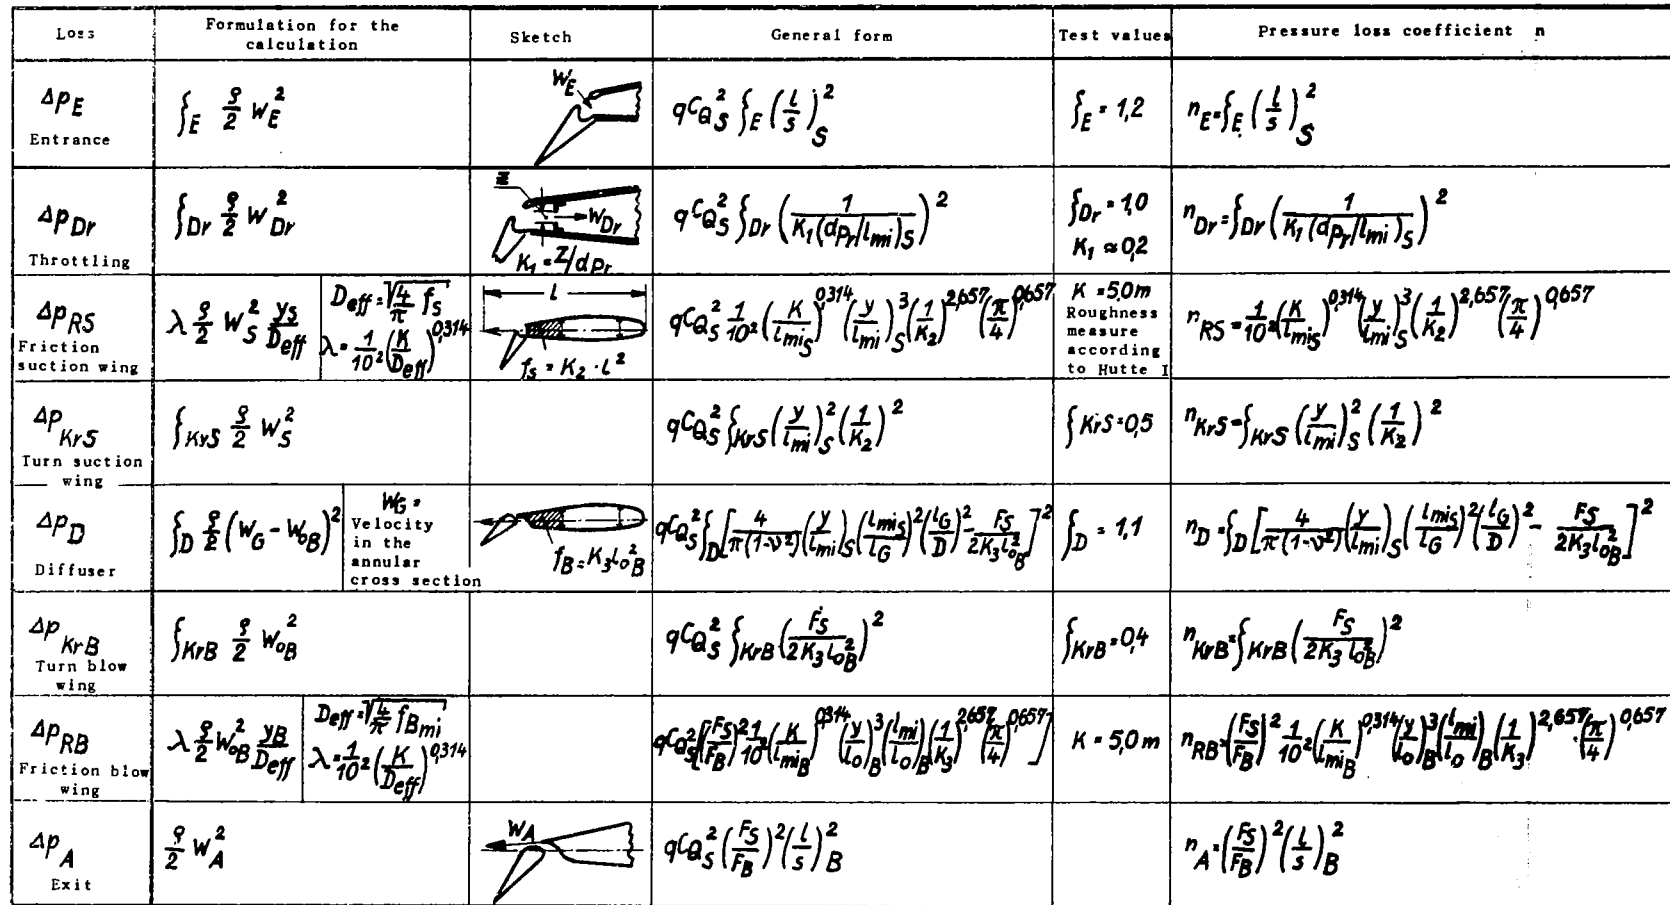 Loss | Formulation for the calculation | Sketch | General form | Test values | Pressure loss coefficient n
Δp_E Entrance | ζ_E ρ/2 W_E^2 | W_E | q C_Q_S^2 ζ_E (l/s)_S^2 | ζ_E = 1,2 | n_E = ζ_E (l/s)_S^2
Δp_Dr Throttling | ζ_Dr ρ/2 W_Dr^2 | Z W_Dr K_1 = Z/d_Pr | q C_Q_S^2 ζ_Dr (1/(K_1 (d_Pr/l_mi)_S))^2 | ζ_Dr = 1,0 K_1 ≈ 0,2 | n_Dr = ζ_Dr (1/(K_1 (d_Pr/l_mi)_S))^2
Δp_RS Friction suction wing | λ ρ/2 W_S^2 y_S/D_eff | D_eff = √(4/π f_S) λ = 1/10^2 (K/D_eff)^0,314 | l f_S = K_2 · l^2 | q C_Q_S^2 1/10^2 (K/l_mi_S)^0,314 (y/l_mi)_S^3 (1/K_2)^2,657 (π/4)^0,657 | K = 5,0 m Roughness measure according to Hutte I | n_RS = 1/10^2 (K/l_mi_S)^0,314 (y/l_mi)_S^3 (1/K_2)^2,657 (π/4)^0,657
Δp_KrS Turn suction wing | ζ_KrS ρ/2 W_S^2 | q C_Q_S^2 ζ_KrS (y/l_mi)_S^2 (1/K_2)^2 | ζ_KrS = 0,5 | n_KrS = ζ_KrS (y/l_mi)_S^2 (1/K_2)^2
Δp_D Diffuser | ζ_D ρ/2 (W_G - W_oB)^2 | W_G = Velocity in the annular cross section | f_B = K_3 l_oB^2 | q C_Q_S^2 ζ_D [4/(π(1-ν^2)) (y/l_mi)_S (l_mi_S/l_G)^2 (l_G/D)^2 - F_S/(2K_3 l_oB^2)]^2 | ζ_D = 1,1 | n_D = ζ_D [4/(π(1-ν^2)) (y/l_mi)_S (l_mi_S/l_G)^2 (l_G/D)^2 - F_S/(2K_3 l_oB^2)]^2
Δp_KrB Turn blow wing | ζ_KrB ρ/2 W_oB^2 | q C_Q_S^2 ζ_KrB (F_S/(2K_3 l_oB^2))^2 | ζ_KrB = 0,4 | n_KrB = ζ_KrB (F_S/(2K_3 l_oB^2))^2
Δp_RB Friction blow wing | λ ρ/2 W_oB^2 y_B/D_eff | D_eff = √(4/π f_Bmi) λ = 1/10^2 (K/D_eff)^0,314 | q C_Q_S^2 [(F_S/F_B)^2 1/10^2 (K/l_mi_B)^0,314 (y/l_o)_B^3 (l_mi/l_o)_B (1/K_3)^2,657 (π/4)^0,657] | K = 5,0 m | n_RB = (F_S/F_B)^2 1/10^2 (K/l_mi_B)^0,314 (y/l_o)_B^3 (l_mi/l_o)_B (1/K_3)^2,657 (π/4)^0,657
Δp_A Exit | ρ/2 W_A^2 | W_A | q C_Q_S^2 (F_S/F_B)^2 (l/s)_B^2 | n_A = (F_S/F_B)^2 (l/s)_B^2